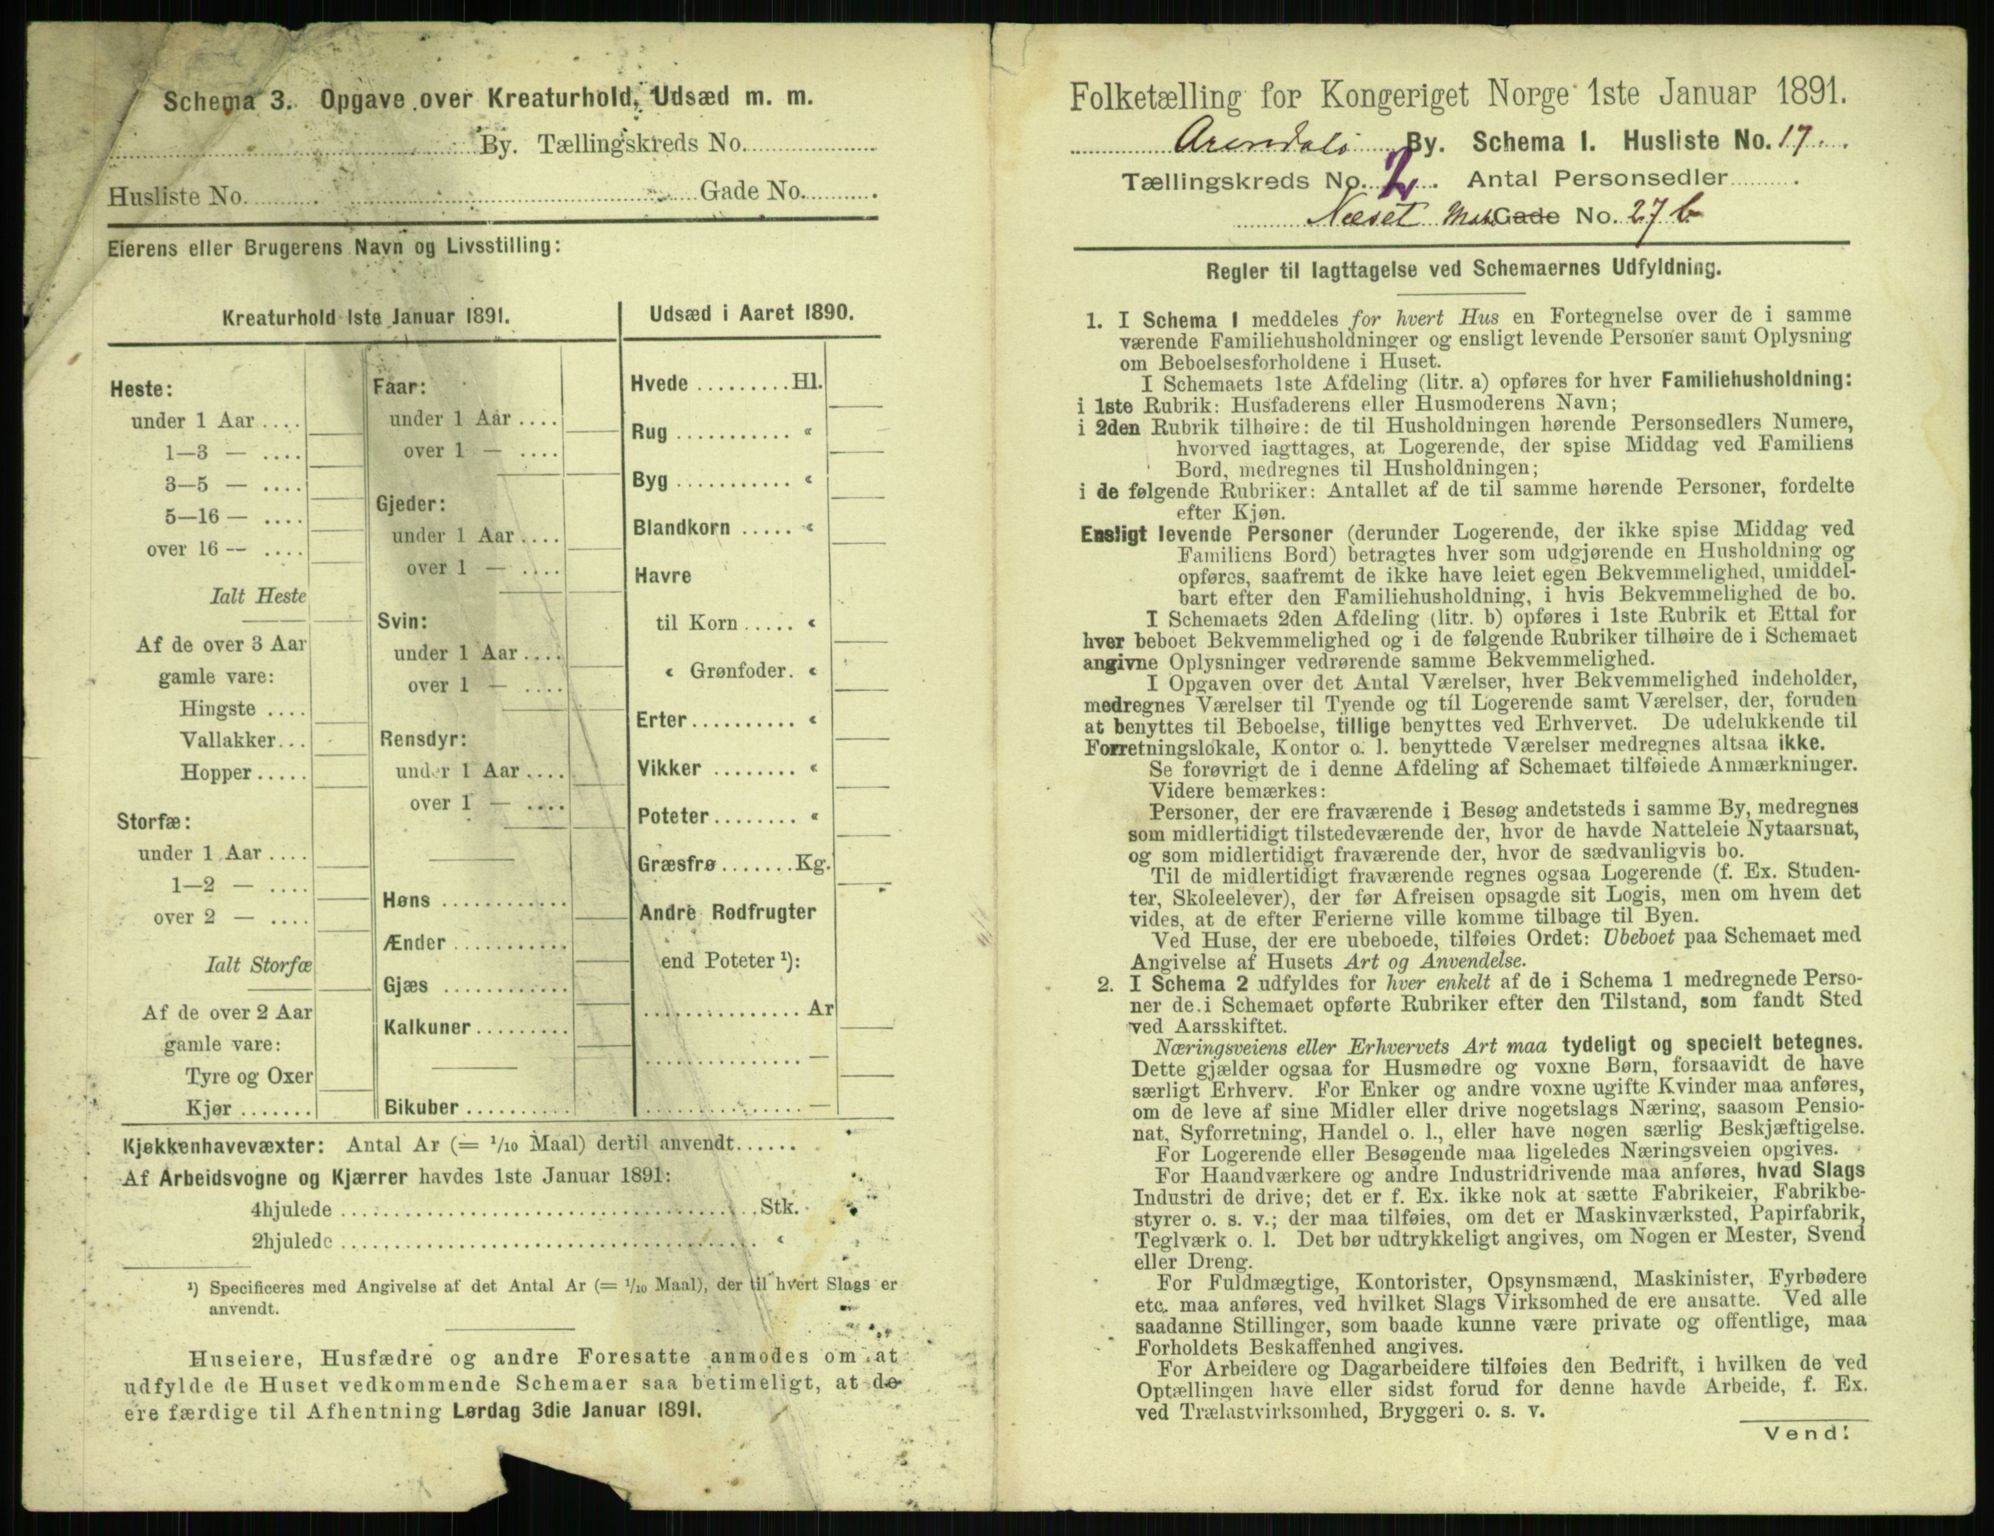 Schema 3. Opgave over Kreaturhold, Udsæd m. m.
By. Tællingskreds No.
Husliste No. Gade No.
Eierens eller Brugerens Navn og Livsstilling:
Kreaturhold 1ste Januar 1891.
Heste:
under 1 Aar ....
1—3 — ....
3—5 — ....
5—16 — ....
over 16 — ....
Ialt Heste
Af de over 3 Aar
gamle vare:
Hingste ....
Vallakker...
Hopper.....
Storfæ:
under 1 Aar ....
1—2 — ....
over 2 — ....
Ialt Storfæ
Af de over 2 Aar
gamle vare:
Tyre og Oxer
Kjør .......
Faar:
under 1 Aar ....
over 1 — ....
Gjeder:
under 1 Aar ....
over 1 — ....
Svin:
under 1 Aar ....
over 1 — ....
Rensdyr:
under 1 Aar ....
over 1 — ....
Høns ............
Ænder ...........
Gjæs ............
Kalkuner.........
Bikuber ..........
Udsæd i Aaret 1890.
Hvede .........Hl.
Rug ........... «
Byg ........... «
Blandkorn ..... «
Havre
til Korn ..... «
« Grønfoder. «
Erter.......... «
Vikker ........ «
Poteter........ «
Græsfrø .......Kg.
Andre Rodfrugter
end Poteter ¹):
............... Ar
............... —
............... —
Kjøkkenhavevæxter: Antal Ar (= 1/10 Maal) dertil anvendt......
Af Arbeidsvogne og Kjærrer havdes 1ste Januar 1891:
4hjulede ......................................Stk.
2hjulede ...................................... «
¹) Specificeres med Angivelse af det Antal Ar (= 1/10 Maal), der til hvert Slags er
anvendt.
Huseiere, Husfædre og andre Foresatte anmodes om at
udfylde de Huset vedkommende Schemaer saa betimeligt, at de
ere færdige til Afhentning Lørdag 3die Januar 1891.
Folketælling for Kongeriget Norge 1ste Januar 1891.
Arendals By. Schema 1. Husliste No. 17.
Tællingskreds No. 2. Antal Personsedler
Næset Gade No. 27 b
Regler til Iagttagelse ved Schemaernes Udfyldning.
1. I Schema 1 meddeles for hvert Hus en Fortegnelse over de i samme
værende Familiehusholdninger og ensligt levende Personer samt Oplysning
om Beboelsesforholdene i Huset.
I Schemaets 1ste Afdeling (litr. a) opføres for hver Familiehusholdning:
i 1ste Rubrik: Husfaderens eller Husmoderens Navn;
i 2den Rubrik tilhøire: de til Husholdningen hørende Personsedlers Numere,
hvorved iagttages, at Logerende, der spise Middag ved Familiens
Bord, medregnes til Husholdningen;
i de følgende Rubriker: Antallet af de til samme hørende Personer, fordelte
efter Kjøn.
Ensligt levende Personer (derunder Logerende, der ikke spise Middag ved
Familiens Bord) betragtes hver som udgjørende en Husholdning og
opføres, saafremt de ikke have leiet egen Bekvemmelighed, umiddel-
bart efter den Familiehusholdning, i hvis Bekvemmelighed de bo.
I Schemaets 2den Afdeling (litr. b) opføres i 1ste Rubrik et Ettal for
hver beboet Bekvemmelighed og i de følgende Rubriker tilhøire de i Schemaet
angivne Oplysninger vedrørende samme Bekvemmelighed.
I Opgaven over det Antal Værelser, hver Bekvemmelighed indeholder,
medregnes Værelser til Tyende og til Logerende samt Værelser, der, foruden
at benyttes til Beboelse, tillige benyttes ved Erhvervet. De udelukkende til
Forretningslokale, Kontor o. l. benyttede Værelser medregnes altsaa ikke.
Se forøvrigt de i denne Afdeling af Schemaet tilføiede Anmærkninger.
Videre bemærkes:
Personer, der ere fraværende i Besøg andetsteds i samme By, medregnes
som midlertidigt tilstedeværende der, hvor de havde Natteleie Nytaarsnat,
og som midlertidigt fraværende der, hvor de sædvanligvis bo.
Til de midlertidigt fraværende regnes ogsaa Logerende (f. Ex. Studen-
ter, Skoleelever), der før Afreisen opsagde sit Logis, men om hvem det
vides, at de efter Ferierne ville komme tilbage til Byen.
Ved Huse, der ere ubeboede, tilføies Ordet: Ubeboet paa Schemaet med
Angivelse af Husets Art og Anvendelse.
2. I Schema 2 udfyldes for hver enkelt af de i Schema 1 medregnede Perso-
ner de i Schemaet opførte Rubriker efter den Tilstand, som fandt Sted
ved Aarsskiftet.
Næringsveiens eller Erhvervets Art maa tydeligt og specielt betegnes.
Dette gjælder ogsaa for Husmødre og voxne Børn, forsaavidt de have
særligt Erhverv. For Enker og andre voxne ugifte Kvinder maa anføres,
om de leve af sine Midler eller drive nogetslags Næring, saasom Pensio-
nat, Syforretning, Handel o. l., eller have nogen særlig Beskjæftigelse.
For Logerende eller Besøgende maa ligeledes Næringsveien opgives.
For Haandværkere og andre Industridrivende maa anføres, hvad Slags
Industri de drive; det er f. Ex. ikke nok at sætte Fabrikeier, Fabrikbe-
styrer o. s. v.; der maa tilføies, om det er Maskinværksted, Papirfabrik,
Teglværk o. l. Det bør udtrykkeligt angives, om Nogen er Mester, Svend
eller Dreng.
For Fuldmægtige, Kontorister, Opsynsmænd, Maskinister, Fyrbødere
etc. maa anføres, ved hvilket Slags Virksomhed de ere ansatte. Ved alle
saadanne Stillinger, som baade kunne være private og offentlige, maa
Forholdets Beskaffenhed angives.
For Arbeidere og Dagarbeidere tilføies den Bedrift, i hvilken de ved
Optællingen have eller sidst forud for denne havde Arbeide, f. Ex.
ved Trælastvirksomhed, Bryggeri o. s. v.
Vend!